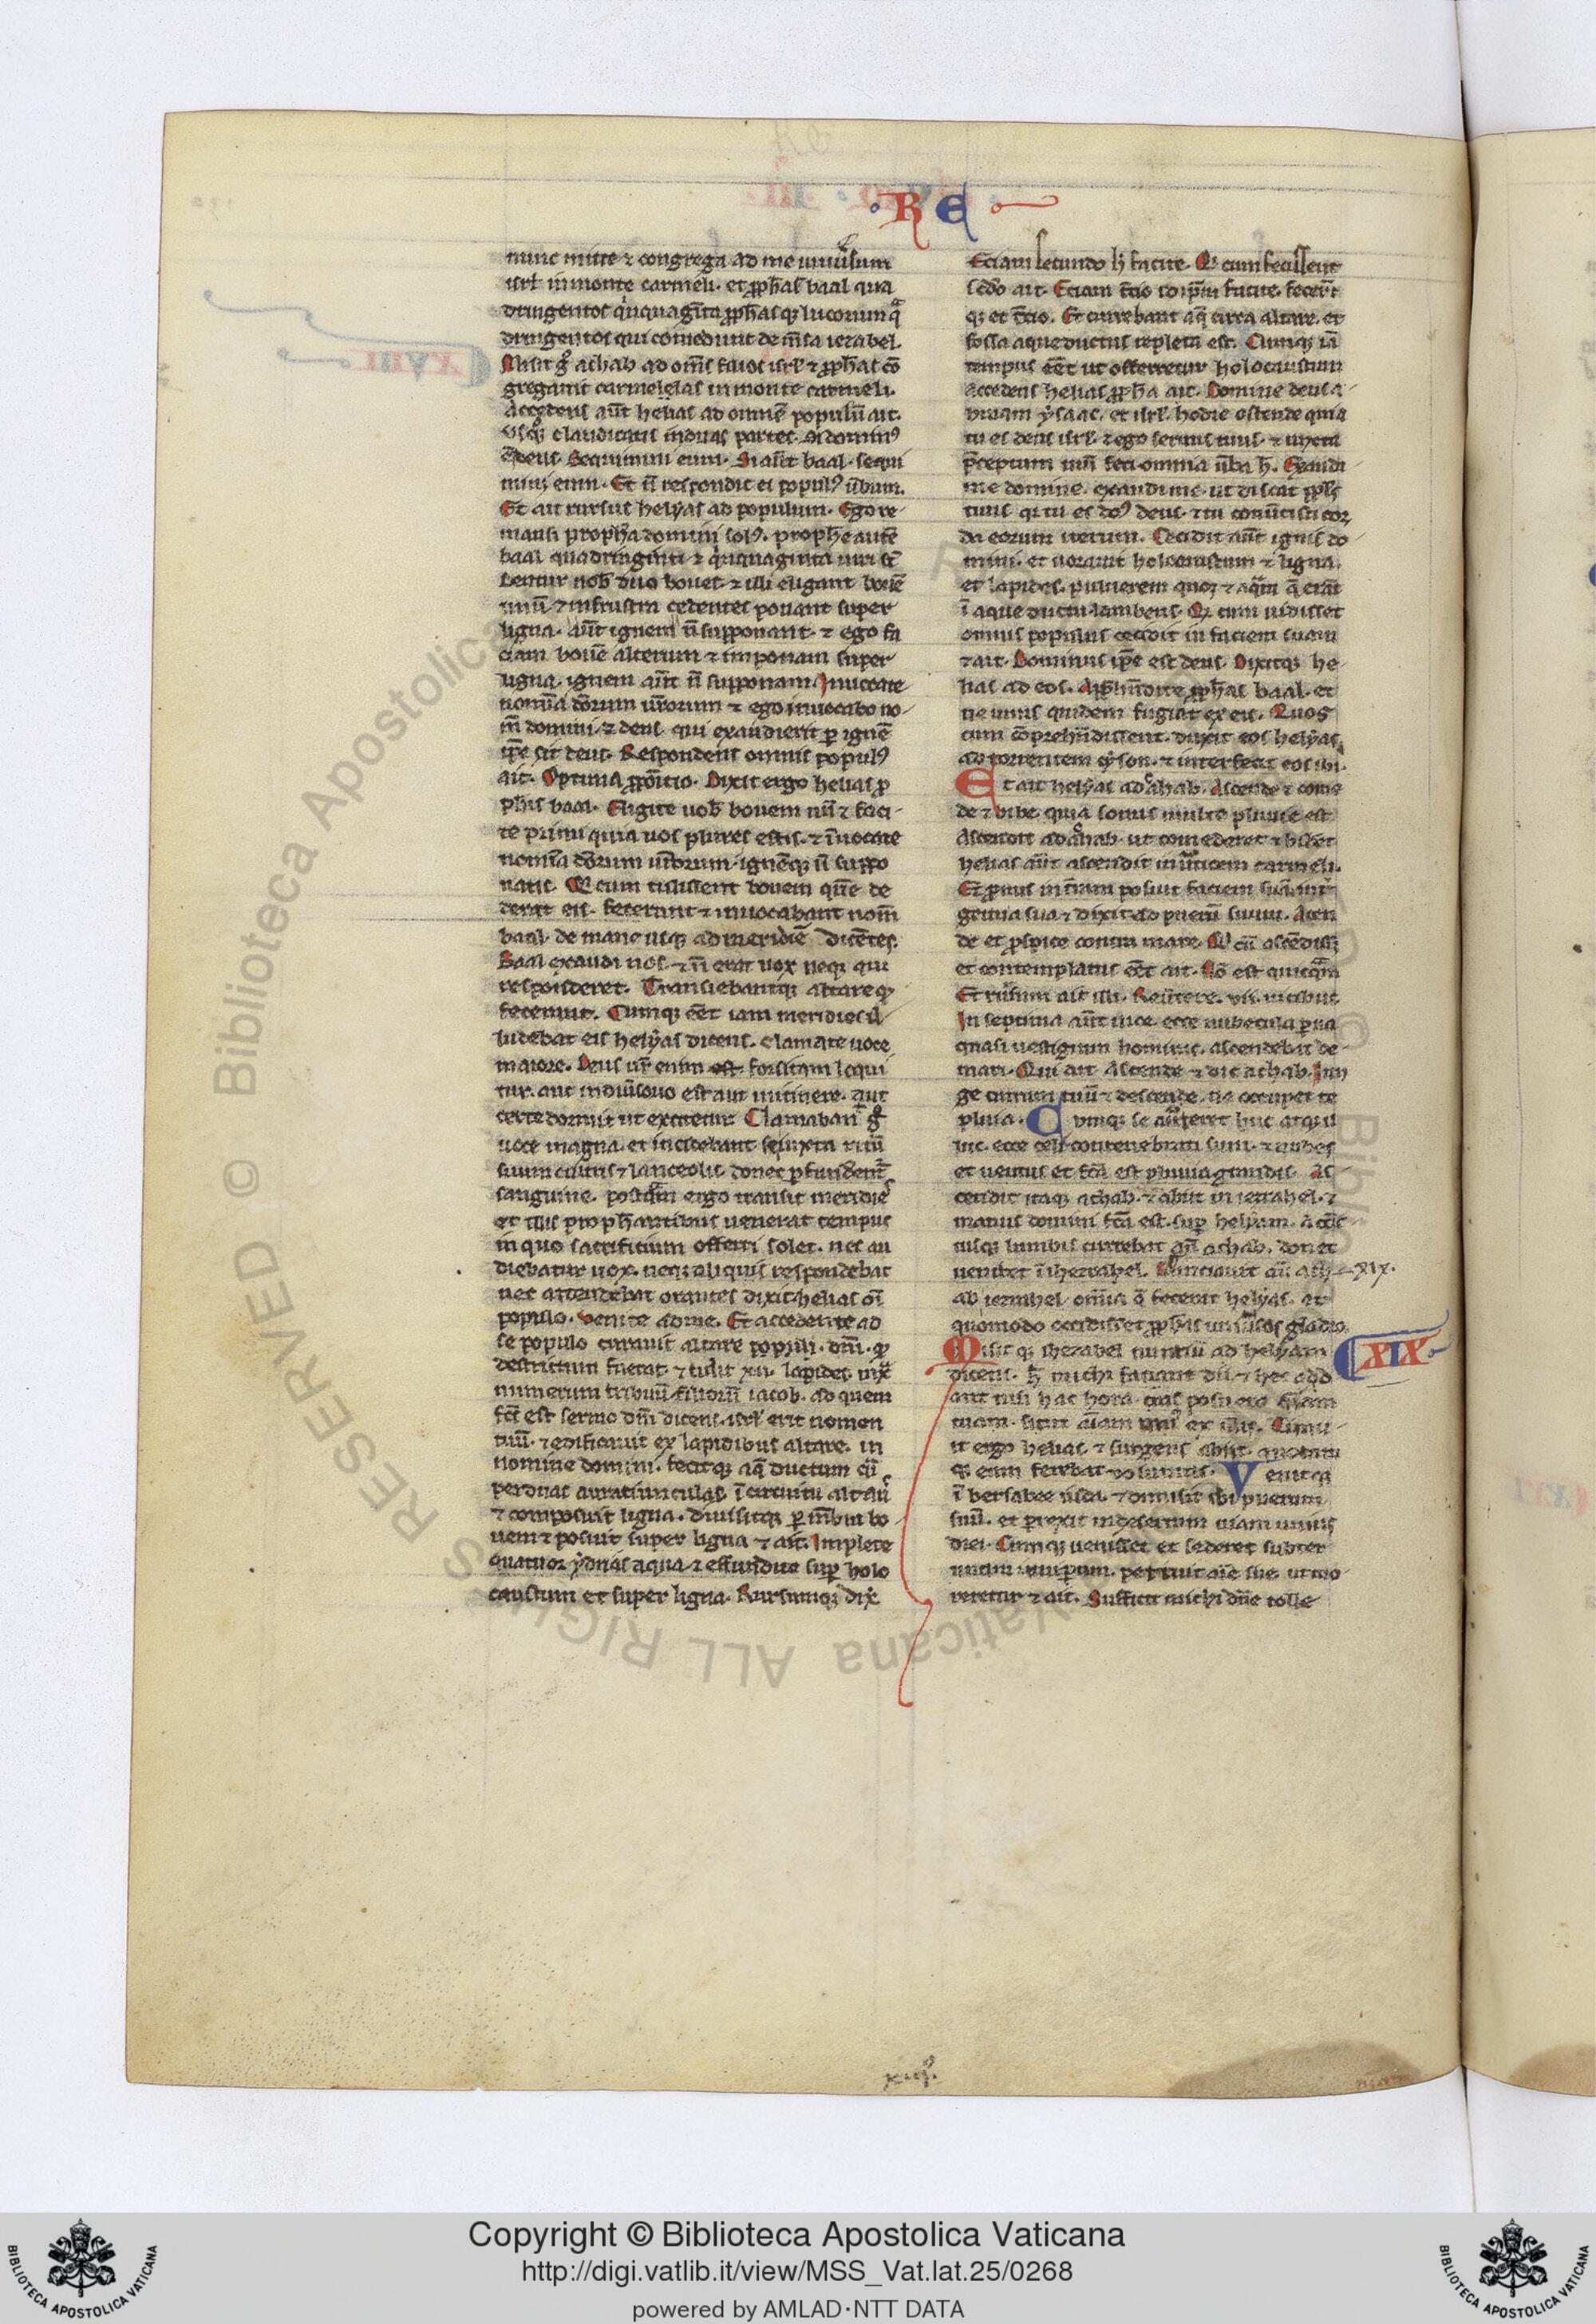 · R E
nunc mitte ⁊ congrega ad me uniũsum
isrl in monte carmeli. et ꝓph̃as baal qua
dringentos q̇nquagĩta ꝓph̃asq; lucorum q̃
dringentos qui comedunt de m̃sa iezabel.
Misit gͦ achab ad om̃s filios isrl ⁊ ꝓph̃as cõ
gregauit in monte carmeli.
Accedens aũt helias ad omnẽ populũ ait.
Vsq̃q; claudicatis in duas partes. Si dominꝰ
ẽ deus. Sequimini eum. Si aũt baal. sequi
mini eum. Et ñ respondit ei populꝰ ũbum.
Et ait rursus helyas ad populum. Ego re
mansi propha domini solꝰ. prophe autẽ
baal quadringinti ⁊ q̇nquaginta uiri st̃
Dentur nob̃ duo boues ⁊ illi eligant bouẽ
unũ ⁊ in frustra cedentes ponant super
ligna. aũt ignem ñ supponant. ⁊ ego fa
ciam bouẽ alterum ⁊ imponam super
ligna. ignem aũt ñ supponam. Inuocate
nomĩa deorum ur̃orum ⁊ ego inuocabo no
m̃ domini. ⁊ deus qui exaudierit ꝑ ignẽ
ip̃e sit deus. Respondens omnis populꝰ
ait. Optima ꝓpõitio. Dixit ergo helias ꝓ
phis baal. Eligite uob̃ bouem unũ ⁊ faci
te primi quia uos plures estis. ⁊ ĩuocate
nomĩa deorum ur̃orum. ignẽq; ñ suppo
natis. Qi cum tulissent bouem quẽ de
derat eis. fecerunt ⁊ inuocabant nom̃
baal. de mane usq; ad meridiẽ dicẽtes.
Baal exaudi nos. ⁊ ñ erat uox neq; qui
responderet. Transiebantq; altare q̃
fecerunt. Cumq; eẽt iam meridies il
ludebat eis helyas dicens. clamate uoce
maiore. Deus ur̃ enim est forsitam loqui
tur. aut in diũsorio est aut in itinere. aut
certe dormit ut excitetur. Clamaban̾ gͦ
uoce magna. et incidebant se iuxta ritũ
suum cultris ⁊ lanceolis. donec ꝑfunderent̃
sanguine. postq̃m ergo transiit meridiẽs
et illis proph̃antibus uenerat tempus
in quo sacrificium offerri solet. nec au
diebatur uox. neq; aliquis respondebat
nec attendebat orantes dixit helias oĩ
populo. Venite ad me. Et accedente ad
se populo curauit altare dñi. q̃
destructum fuerat. ⁊ tulit xii. lapides iuxͣ
numerum tribuũ filiorũ iacob. ad quem
fc̃s est sermo dñi dicens. isrl erit nomen
tuũ. ⁊ edificauit ex lapidibus altare. in
nomine domini. fecitq; aq̃ ductum q̃i
per duas aratiunculas. ĩ circuitu altaris
⁊ composuit ligna. diuisitq; ꝑ m̃bra bo
uem ⁊ posuit super ligna ⁊ ait. Implete
quatuor ydrias aqua ⁊ effundite suꝑ holo
caustum et super ligna. Rursumq; dix̃
Eciam secundo h̾ facite. Qi cum fecissent
scdo ait. Eciam t̃cio id ip̃m facite. fecer̃t
q; et t̃cio. Et currebant aq̃ circa altare. et
fossa aque ductus repleta est. Cumq; iã
tempus eẽt ut offerretur holocaustum
accedens helias ꝓpha ait. Domine deus a
braam ysaac. et isrl. hodie ostende quia
tu es deus isrl. ⁊ ego seruus tuus. ⁊ iuxta
p̃ceptum tuũ feci omnia ũba h̾. Exaudi
me domine. exaudi me. ut discat ppl̃s
tuus q̇ tu es dñs deus. ⁊ tu conũtisti cor
da eorum iterum. Cecidit aũt ignis do
mini. et uorauit holocaustum ⁊ ligna.
et lapides. puluerem quoq; ⁊ aq̃m q̃ erat
ĩ aque ductu lambens. Qi cum uidisset
omnis populus cecidit in faciem suam
⁊ ait. Dominus ip̃e est deus. Dixitq; he
lias ad eos. Apphẽdite ꝓph̃as baal. et
ne unus quidem fugiat ex eis. Quos
cum cõprehẽdissent. duxit eos helyas
ad torrentem cyson. ⁊ interfecit eos ibi.
Et ait helyas ad achab. Ascende ⁊ come
de ⁊ bibe. quia sonus multe pluuie est
Ascendit achab. ut comederet ⁊ bibẽt
helias aũt ascendit in ũticem carmeli.
Et pronus in tr̃am posuit faciem suã int̃
genua sua ⁊ dixit ad puerũ suum. Ascen
de et prospice contra mare. Qi cũ ascẽdiss;
et contemplatus eẽt ait. Nõ est quicq̃m
Et rursum ait illi. Reũtere. vii. uicibus
In septima aũt uice. ecce nubecula parua
quasi uestigium hominis. ascendebat de
mari. Qui ait Ascende ⁊ dic achab. Iun
ge currum tuũ ⁊ descende. ne occupet te
pluuia. Cumq; se uerteret huc atq; il
luc. ecce celi contenebrati sunt. ⁊ nubes
et uentus et fc̃a est pluuia grandis. As
cendit itaq; achab. ⁊ abiit in iezrahel. ⁊
manus domini fc̃a est. suꝑ helyam. accĩc
tisq; lumbis currebat añ achab. donec
ueniret ĩ ihezrahel. Nunciauit aũ ach xix.
ab iezrahel omĩa q̃ fecerat helyas. et
quomodo occidisset ꝓph̃as uniũsos gladio.
Misitq; ihezabel nuntiũ ad helyam XIX
dicens. h̾ michi faciant dii. ⁊ hec add
ant nisi hac hora cras posuero aĩam
tuam. sicut aĩam uniꝰ ex illis. Timu
it ergo helias ⁊ surgens abiit. quocum
q; eum ferebat uoluntas. Venitq;
ĩ bersabee iuda. ⁊ dimisit ibi puerum
suũ. et perrexit in desertum uiam unius
diei. Cumq; uenisset et sederet subter
unam iuniperum. petiuit aĩe sue ut mo
reretur ⁊ ait. Sufficit michi dñe tolle
Copyright © Biblioteca Apostolica Vaticana
http://digi.vatlib.it/view/MSS_Vat.lat.25/0268
powered by AMLAD·NTT DATA